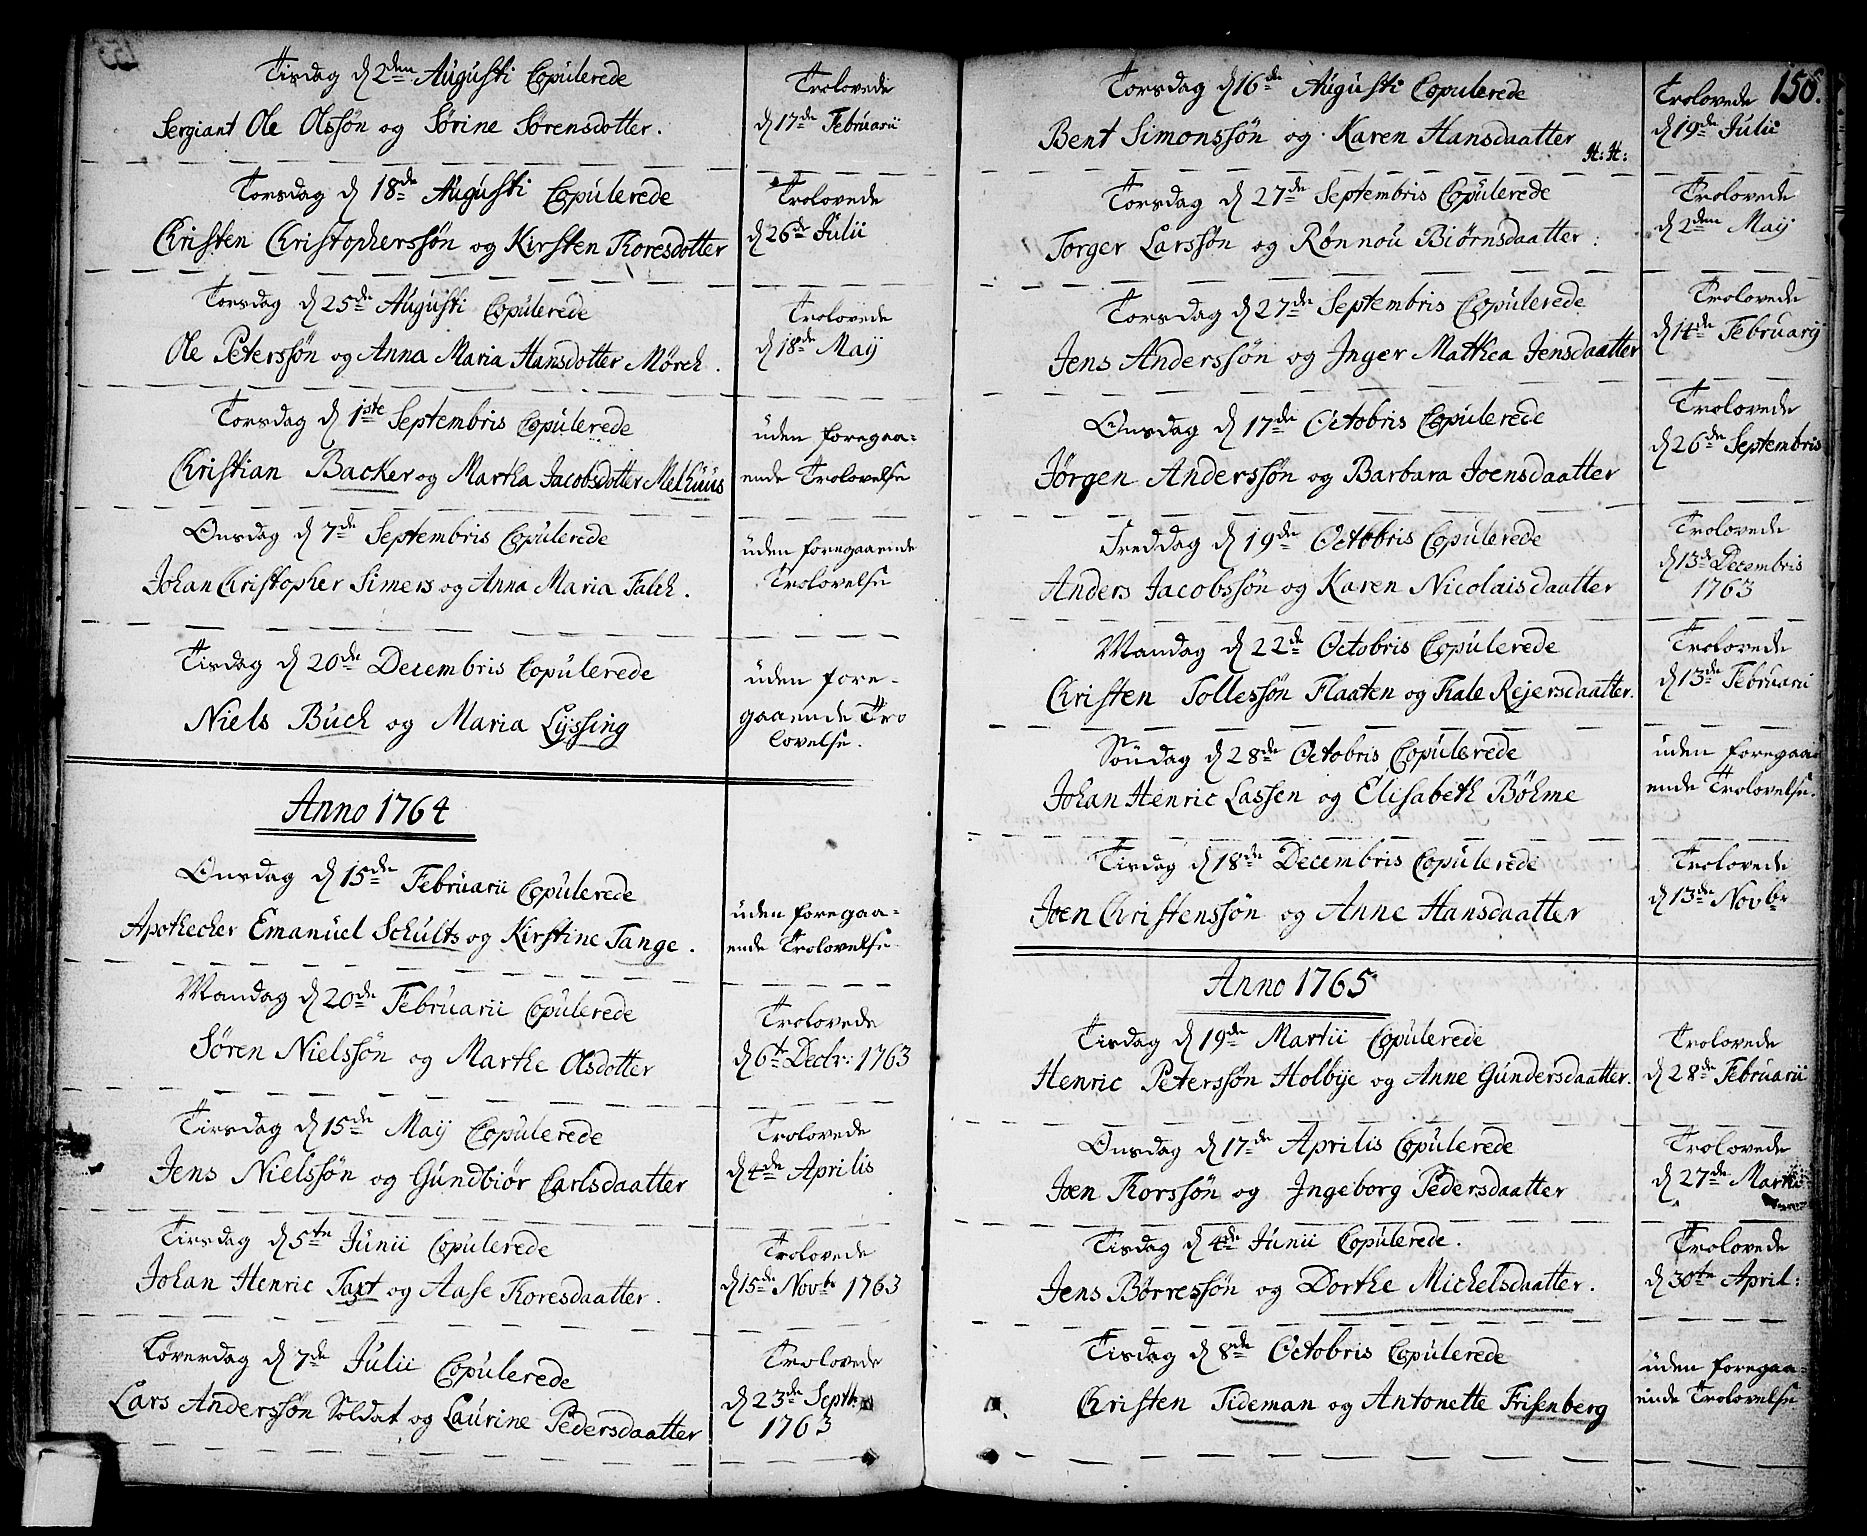 Tisdag d 2den Augusti Copulerede
Sergiant Ole Olssøn og Sørine Sørensdotter.
Trolovede
d 17de Februarii
Torsdag d 18de Augusti Copulerede
Christen Christopherssøn og Kirsten Toresdotter
Trolovede
d 26de Julii
Torsdag d 25de Augusti Copulerede
Ole Peterssøn og Anna Maria Hansdotter Mørch.
Trolovede
d 18de Maij
Torsdag d 1ste Septembris Copulerede
Christian Backer og Martha Jacobsdotter Melhuus
uden foregaa-
ende Trolovelse
Onsdag d 7de Septembris Copulerede
Johan Christopher Simers og Anna Maria Falch.
uden foregaaende
Trolovelse
Tisdag d 20de Decembris Copulerede
Niels Buch og Maria Lyssing
uden fore-
gaaende Tro
lovelse.
Anno 1764
Onsdag d 15de Februarii Copulerede
Apothecher Emanuel Schults og Kirstine Tange.
uden foregaa-
ende Trolovelse
Mandag d 20de Februarii Copulerede
Søren Nielssøn og Marthe Olsdotter
Trolovede
d 6te Decbr: 1763
Tirsdag d 15de Maij Copulerede
Jens Nielssøn og Gundbiør Carlsdaatter
Trolovede
d 4de Aprilis
Tirsdag d 5te Junii Copulerede
Johan Henric Taxt og Aase Toresdaatter.
Trolovede
d 15de Novbr 1763
Løverdag d 7de Julii Copulerede
Lars Anderssøn Soldat og Laurine Pedersdaatter
Trolovede
d 23de Septbr
1763
156.
Torsdag d 16de Augusti Copulerede
Bent Simonssøn og Karen Hansdaatter
H: H:
Trolovede
d 19de Julii
Torsdag d 27de Septembris Copulerede
Torger Larssøn og Rønnou Biørnsdaatter:
Trolovede
d 2den Maij
Torsdag d 27de Septembris Copulerede
Jens Anderssøn og Inger Mathea Jensdaatter
Trolovede
d 14de Februarij
Onsdag d 17de Octobris Copulerede
Jørgen Anderssøn og Barbara Joensdaatter
Trolovede
d 26de Septembris
Freddag d 19de Octobris Copulerede
Anders Jacobssøn og Karen Nicolaisdaatter
Trolovede
d 13de Decembris
1763
Mandag d 22de Octobris Copulerede
Christen Tollessøn Flaaten og Kale Rejersdaatter.
Trolovede
d 13de Februarii
Søndag d 28de Octobris Copulerede
Johan Henric Lassen og Elisabeth Bøhme
uden foregaa-
ende Trolovelse.
Tisdag d 18de Decembris Copulerede
Joen Christenssøn og Anne Hansdaatter
Trolovede
d 13de Novbr
Anno 1765
Tisdag d 19de Martii Copulerede
Henric Peterssøn Holbye og Anne Gundersdaatter.
Trolovede
d 28de Februarii
Onsdag d 17de Aprilis Copulerede
Joen Korssøn og Ingeborg Pedersdaatter
Trolovede
d 27de Martii
Tisdag d 4de Junii Copulerede.
Jens Børressøn og Dorthe Michelsdaatter.
Trolovede
d 30te April:
Tisdag d 8de Octobris Copulerede
Christen Tideman og Antonette Frisenberg
uden foregaa-
ende Trolovelse